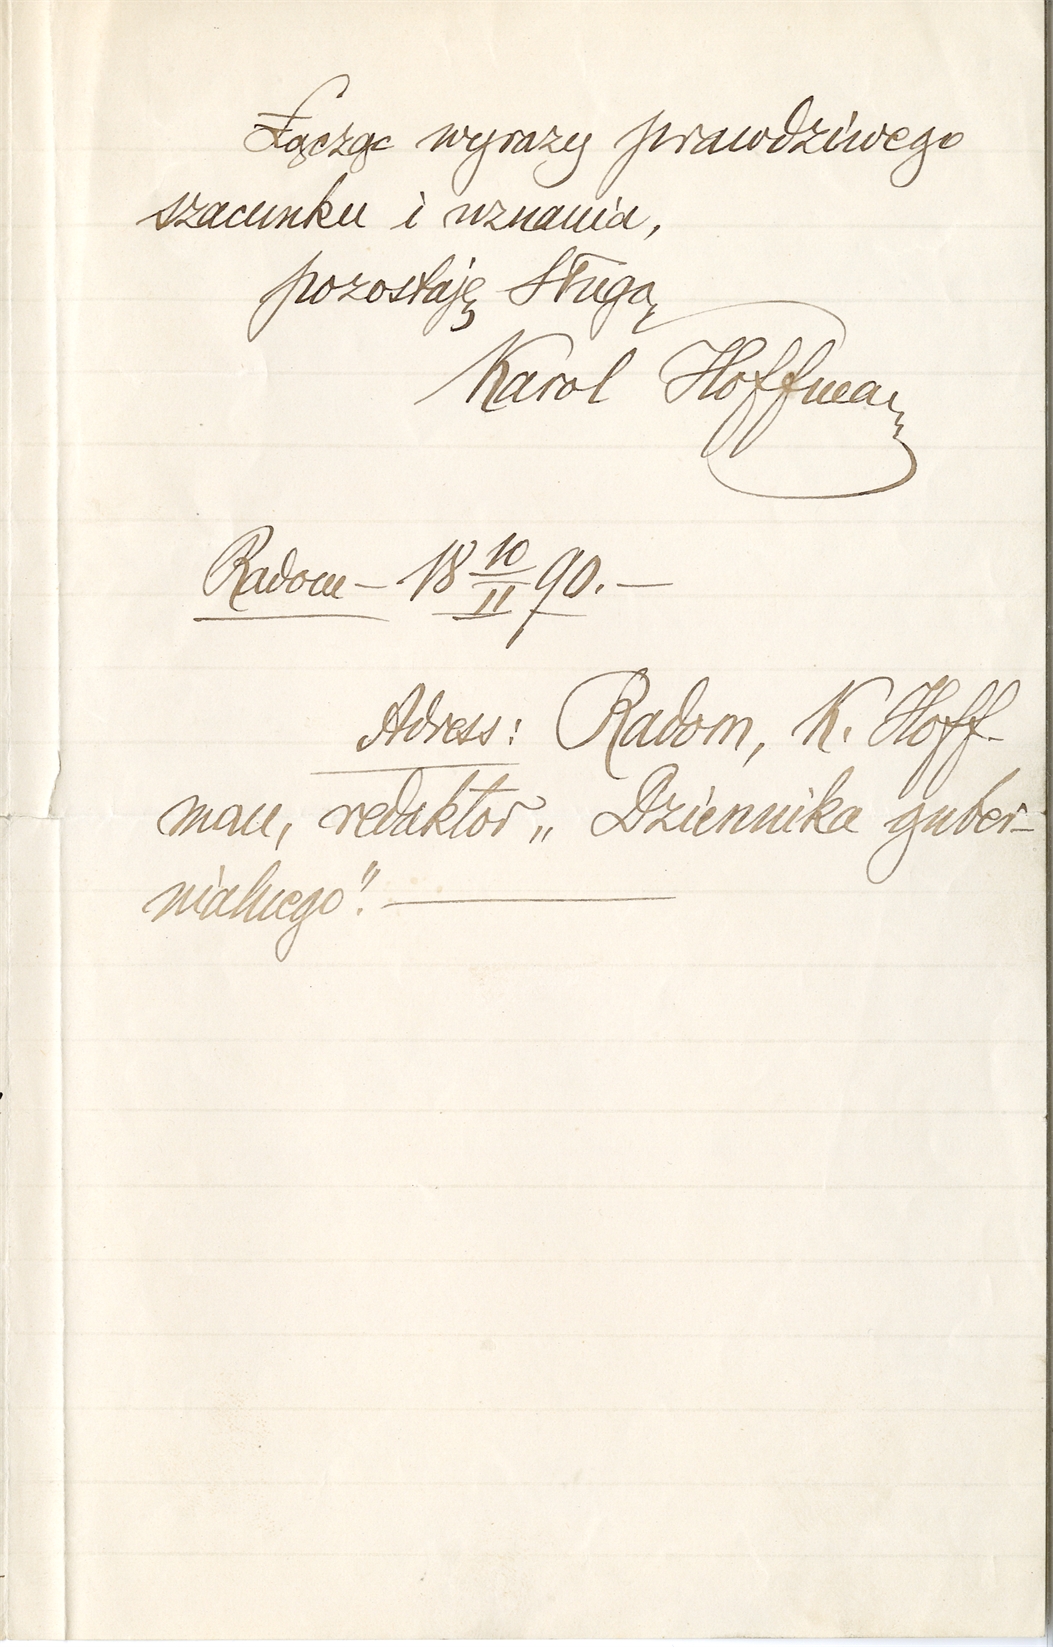 Łącząc wyrazy prawdziwego
szacunku i uznania,
pozostaję sługą
Karol Hoffman
Radom – 18 10/11 90. —
Adress: Radom, K. Hoff-
man, redaktor „Dziennika guber-
nialnego". —